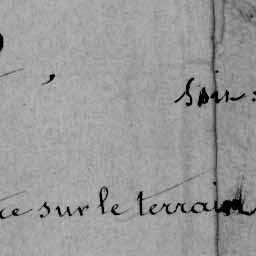 soir:
ce sur le terrain